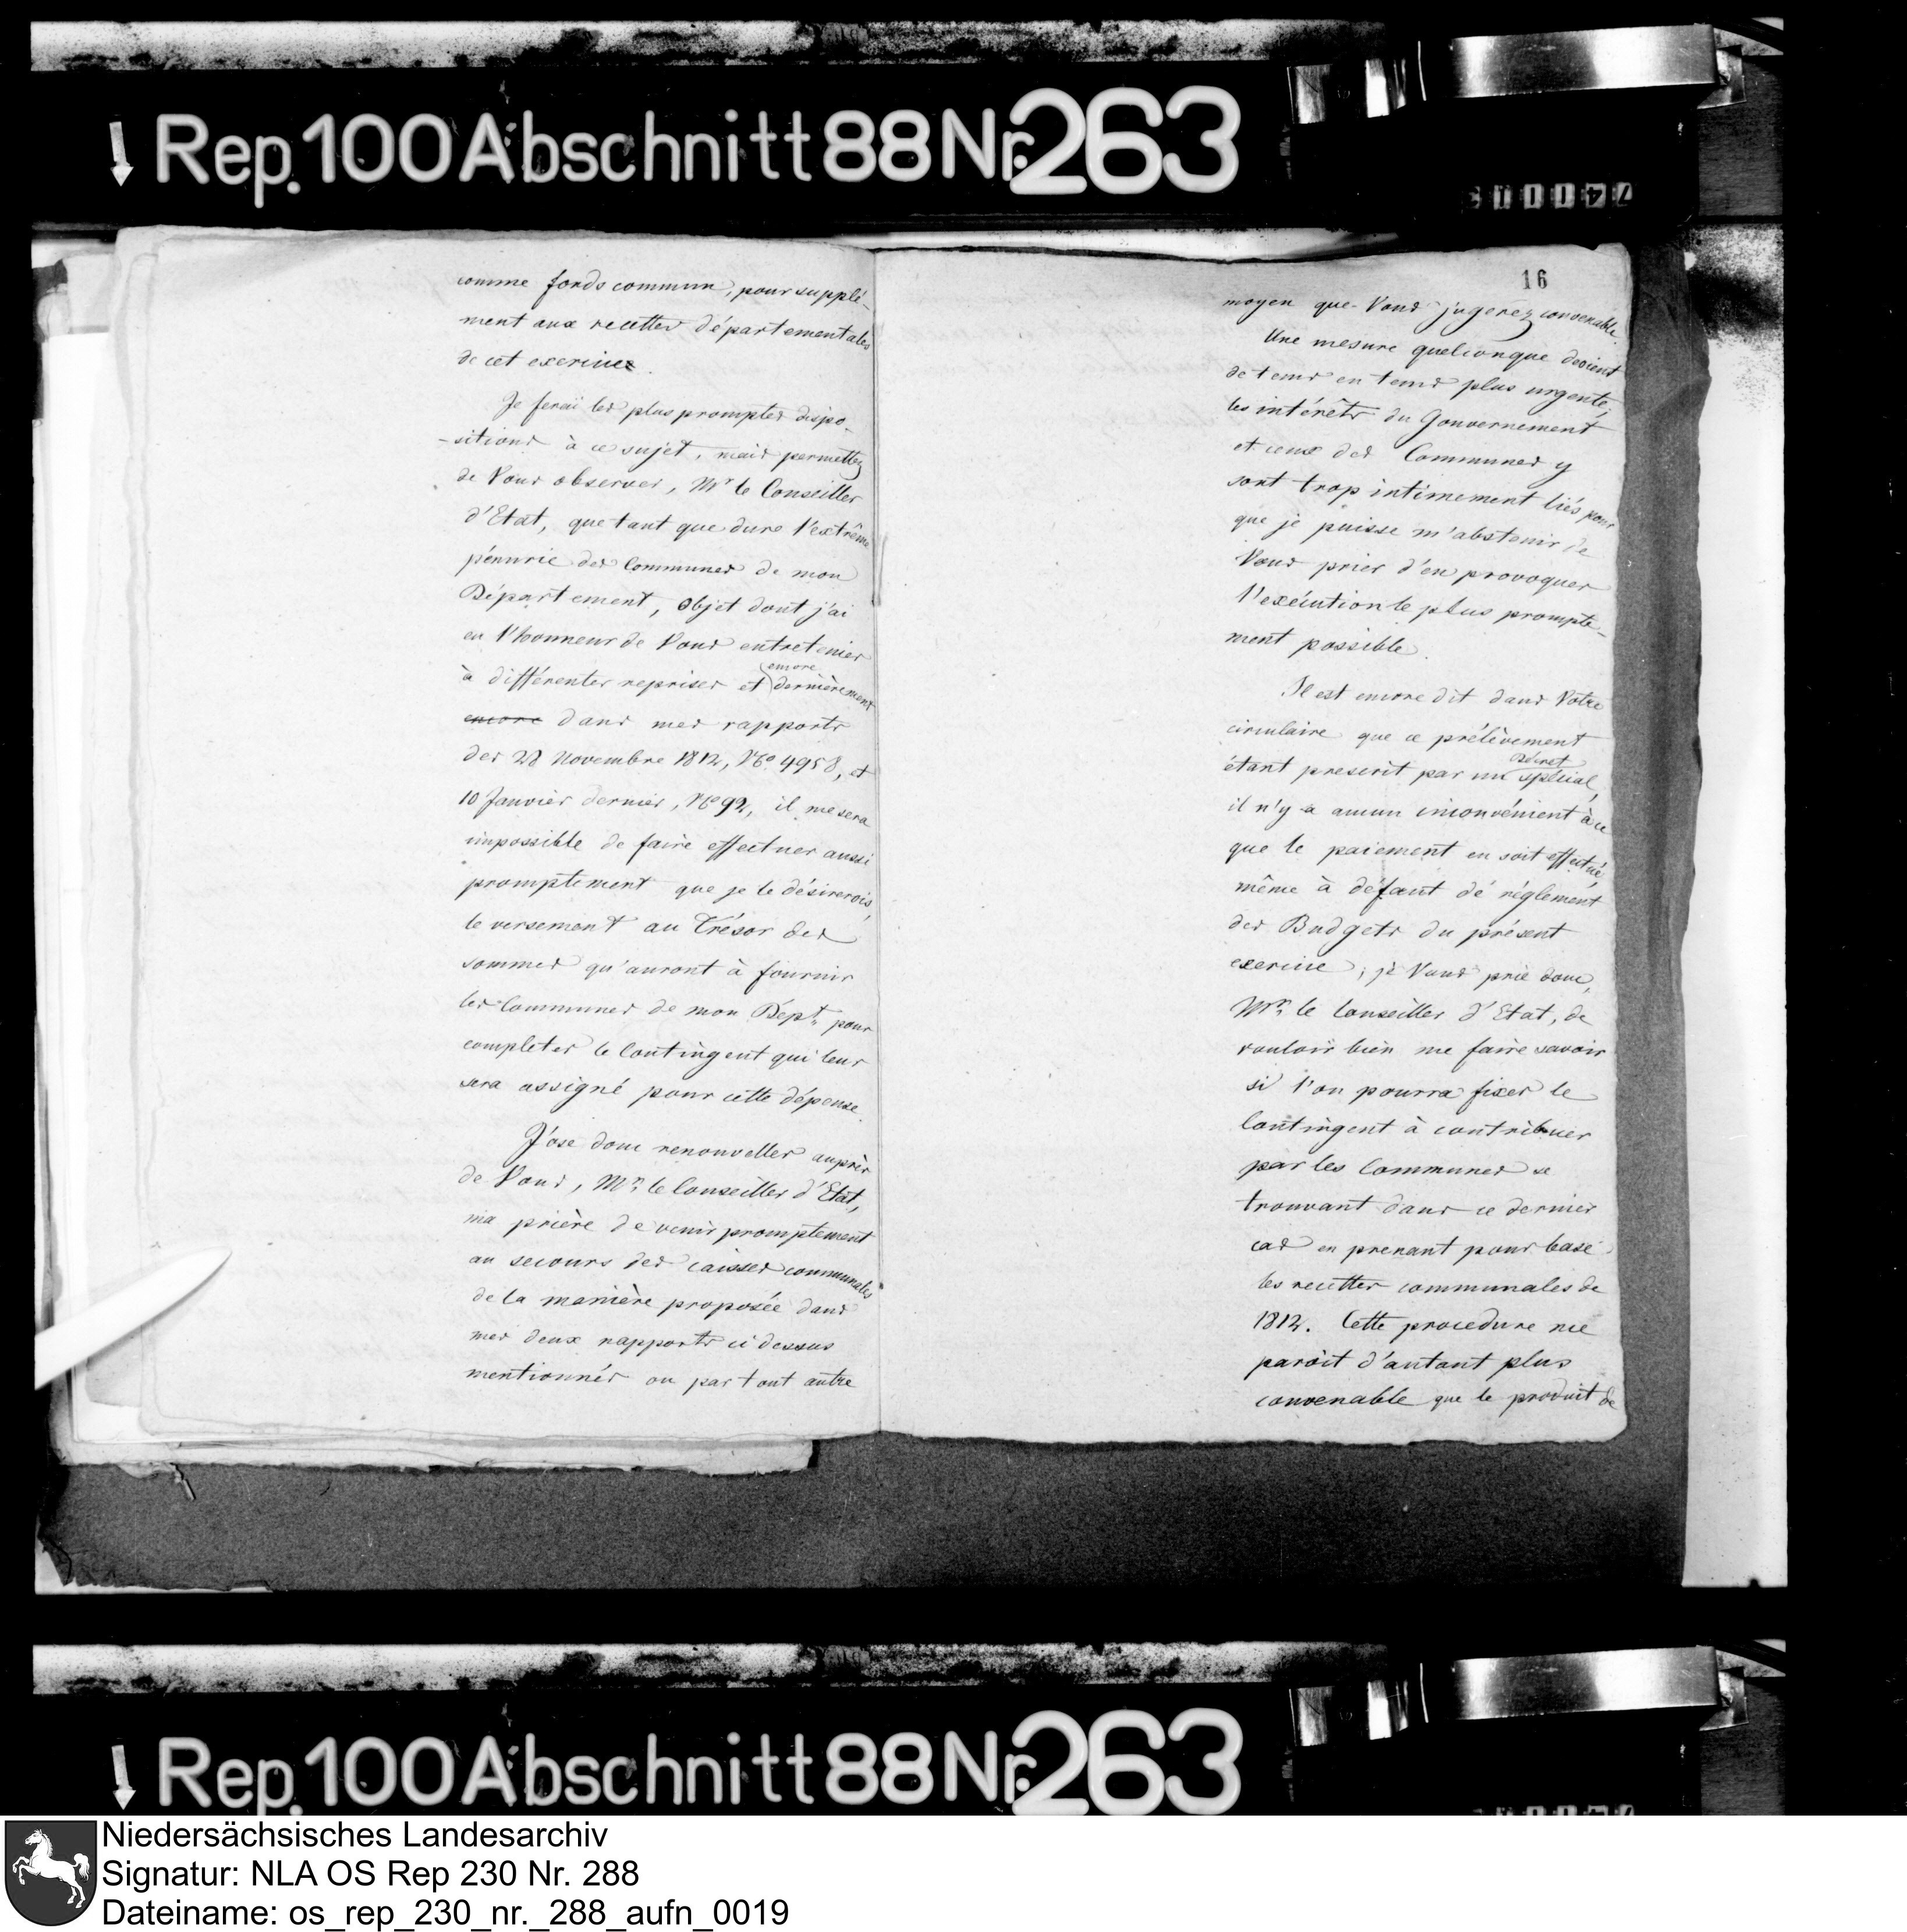 Rep. 100 Abschnitt 88 Nr. 263
comme fonds commun, pour supplé-
ment aux recettes départementales
de cet exercice.
Je ferai les plus promptes dispo-
-sitions à ce sujet, mais permettez
de Vous observer, Mr le Conseiller
d'Etat, que tant que dure l'extrême
pénurie des Communes de mon
Département, objet dont j'ai
eu l'honneur de Vous entretenir
à différentes reprises et (encore dernièrement
encore dans mes rapports
des 28 Novembre 1812, No. 4958, et
10 Janvier dernier, No 92, il me sera
impossible de faire effectuer aussi
promptement que je le désirerois,
le versement au Trésor des
sommes qu'auront à fournir
les Communes de mon Dépt. pour
completer le Contingent qui leur
sera assigné pour cette dépense.
J'ose donc renouveller auprès
de Vous, Mr. le Conseiller d'Etat,
ma prière de venir promptement
au secours des caisses communales
de la manière proposée dans
mes deux rapports ci dessus
mentionnés ou par tout autre
16
moyen que Vous jugerez convenable.
Une mesure quelconque devient
de tems en tems plus urgente;
les intérêts du Gouvernement
et ceux des Communes y
sont trop intimement liés pour
que je puisse m'abstenir de
Vous prier d'en provoquer
l'exécution le plus prompte-
ment possible.
Il est encore dit dans Votre
circulaire que ce prélèvement
étant prescrit par un Décret spécial,
il n'y a aucun inconvénient à ce
que le paiement en soit effectué
même à défaut de réglement
des Budgets du présent
exercice; je Vous prie donc,
Mr. le Conseiller d'Etat, de
vouloir bien me faire savoir
si l'on pourra fixer le
Contingent à contribuer
par les Communes se
trouvant dans ce dernier
cas en prenant pour base
les recettes communales de
1812. Cette procedure me
paroit d'autant plus
convenable que le produit de
Rep. 100 Abschnitt 88 Nr. 263
Niedersächsisches Landesarchiv
Signatur: NLA OS Rep 230 Nr. 288
Dateiname: os_rep_230_nr._288_aufn_0019